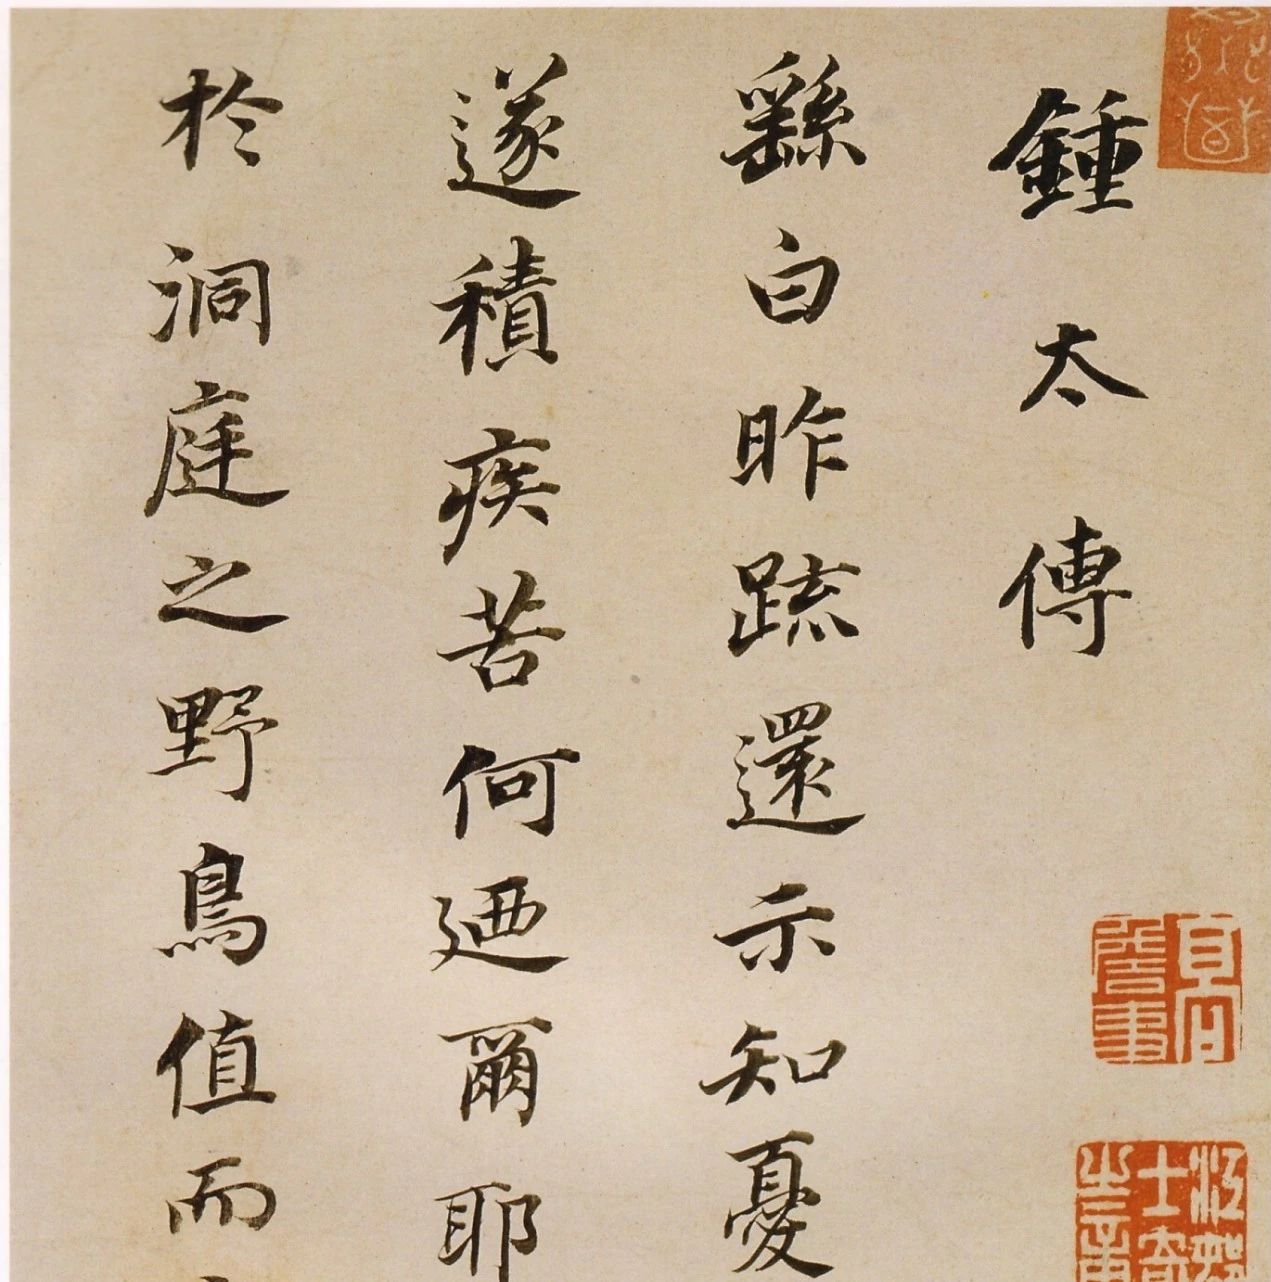 鍾太傅
繇白昨疏還示知憂
遂積疾苦何迺爾耶
於洞庭之野鳥值而